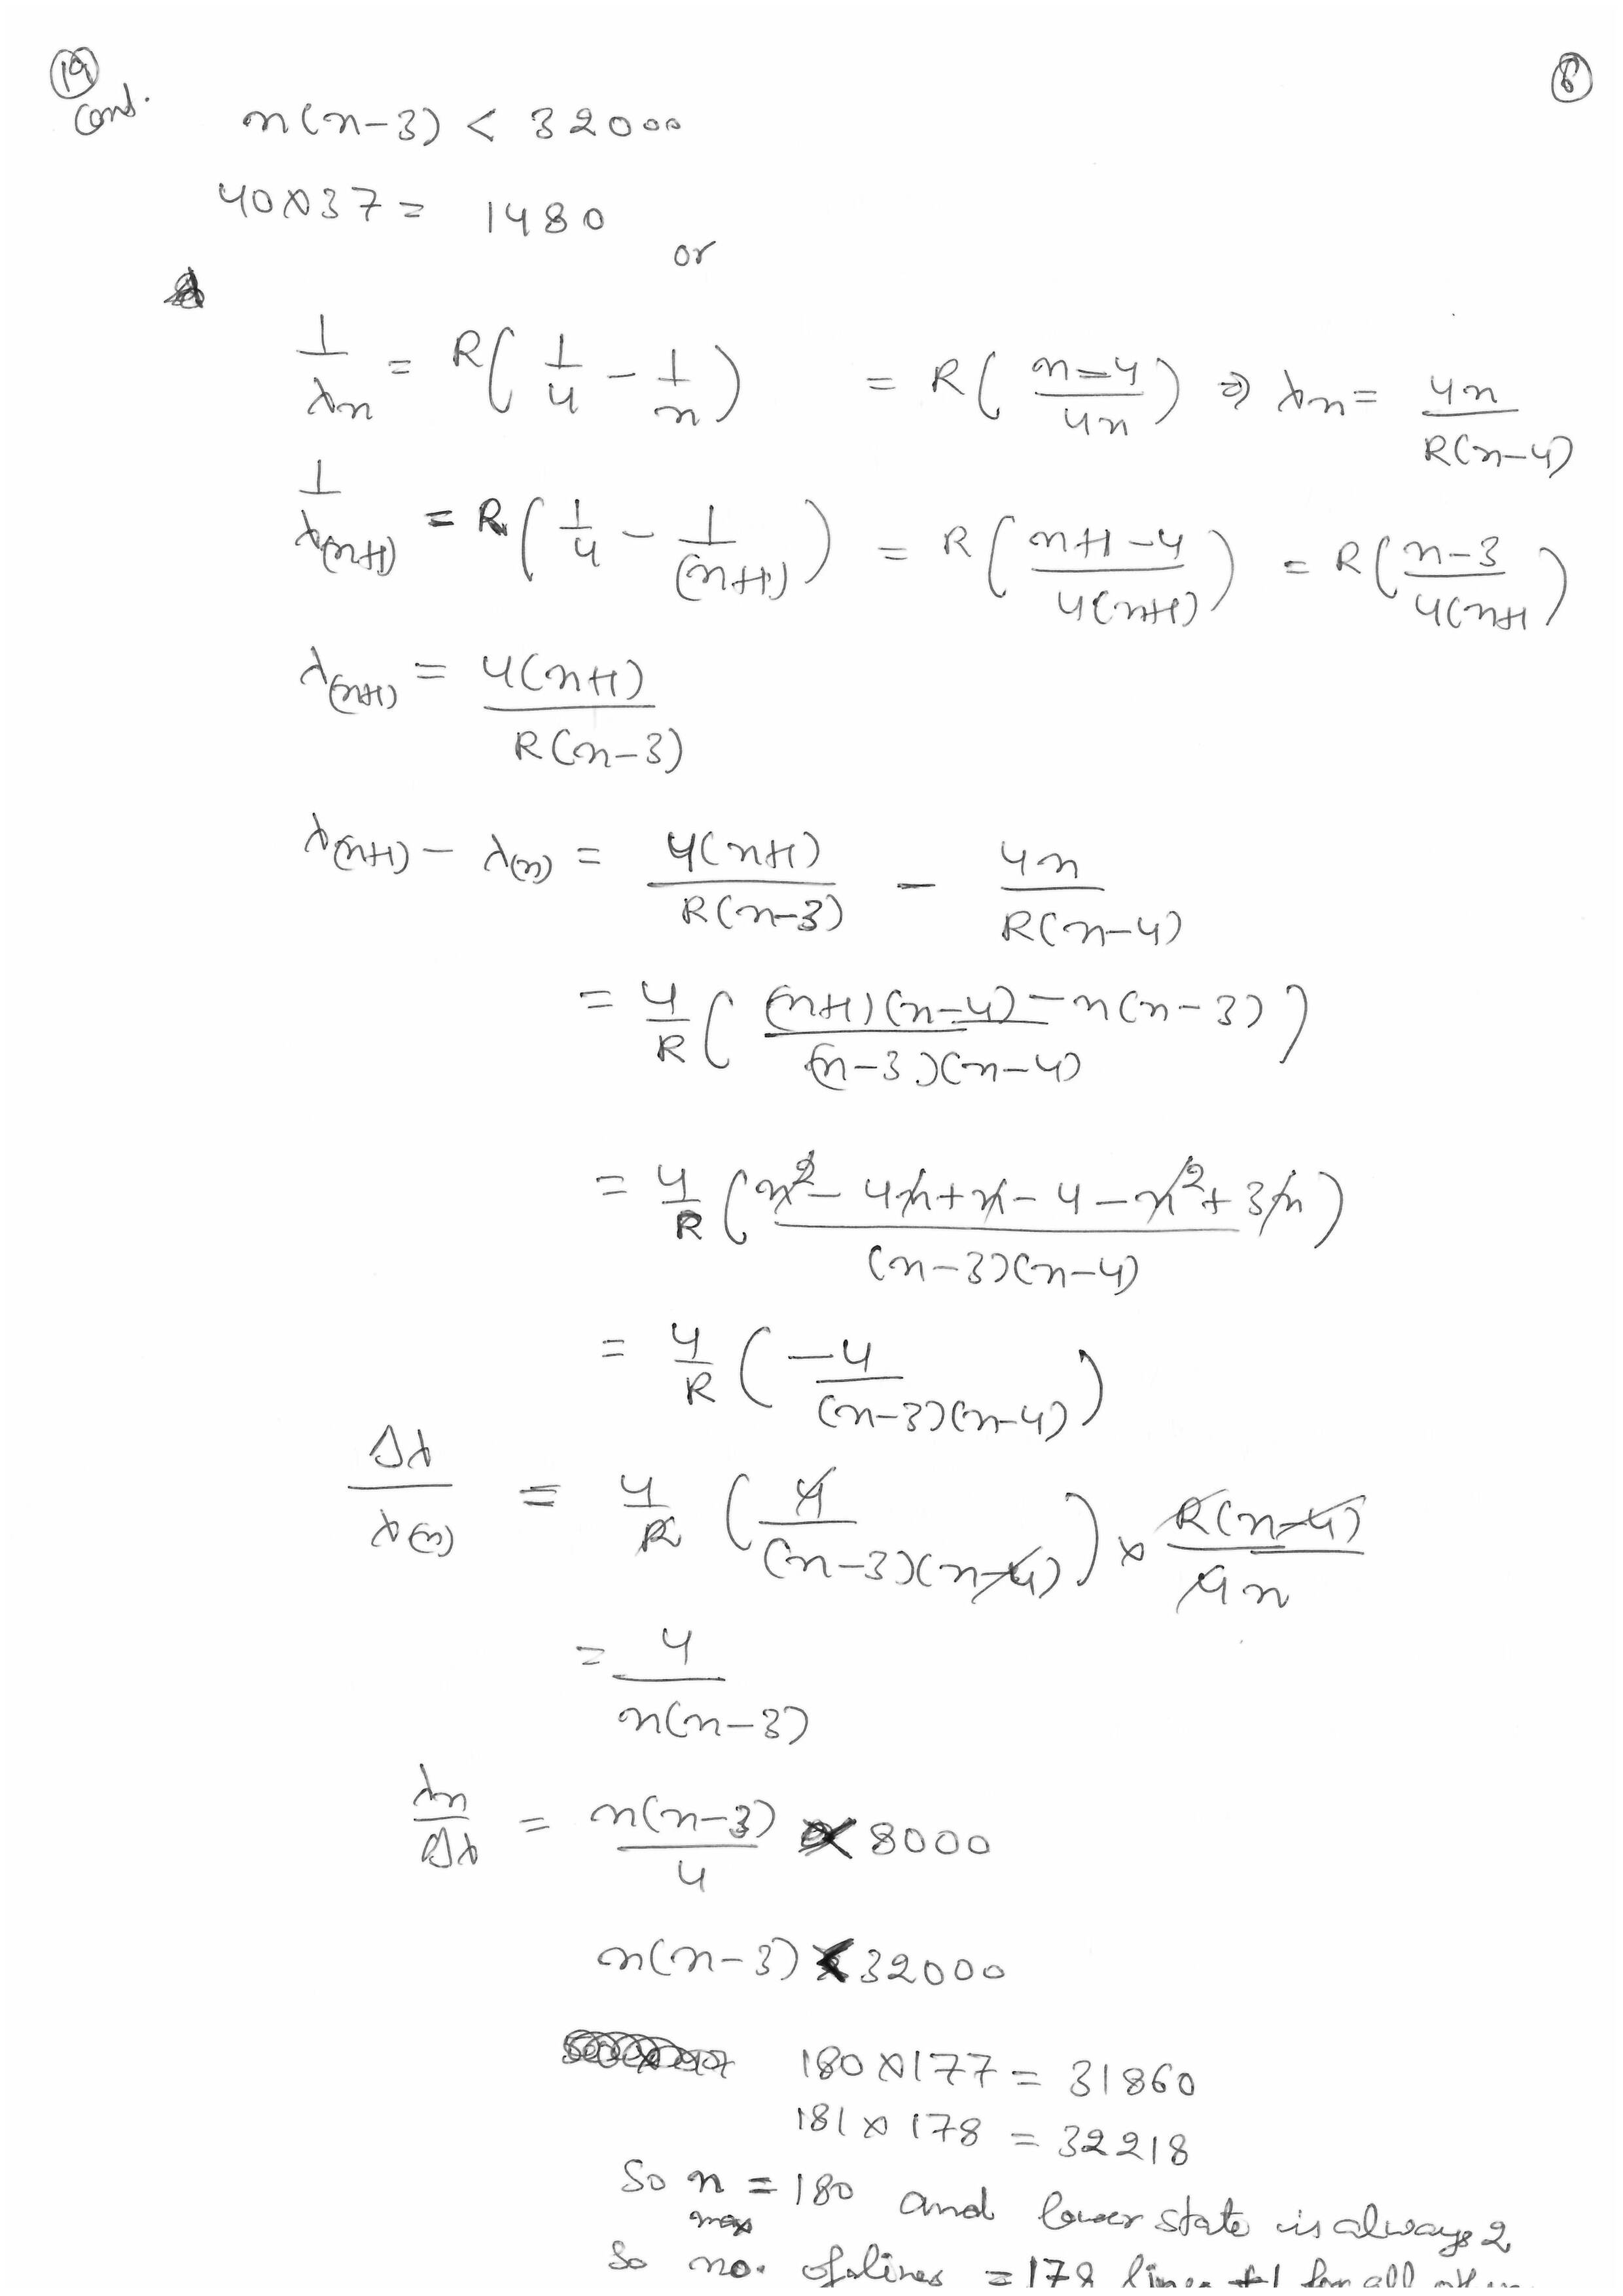 19 cont. 8
n(n-3) < 32000
40×37 = 1480
or
1/λn = R(1/4 - 1/n) = R((n-4)/4n) ⇒ λn = 4n/R(n-4)
1/λ(n+1) = R(1/4 - 1/(n+1)) = R((n+1-4)/4(n+1)) = R((n-3)/4(n+1)
λ(n+1) = 4(n+1)/R(n-3)
λ(n+1) - λ(n) = 4(n+1)/R(n-3) - 4n/R(n-4)
= 4/R ((n+1)(n-4) - n(n-3)/(n-3)(n-4))
= 4/R (n² - 4n + n - 4 - n² + 3n/(n-3)(n-4))
= 4/R (-4/(n-3)(n-4))
Δλ/λ(n) = 4/R (4/(n-3)(n-4)) × R(n-4)/4n
= 4/n(n-3)
λn/Δλ = n(n-3)/4 < 8000
n(n-3) < 32000
180×177 = 31860
181×178 = 32218
So n max = 180 and lower state is always 2
So no. of lines = 178 lines +1 for all